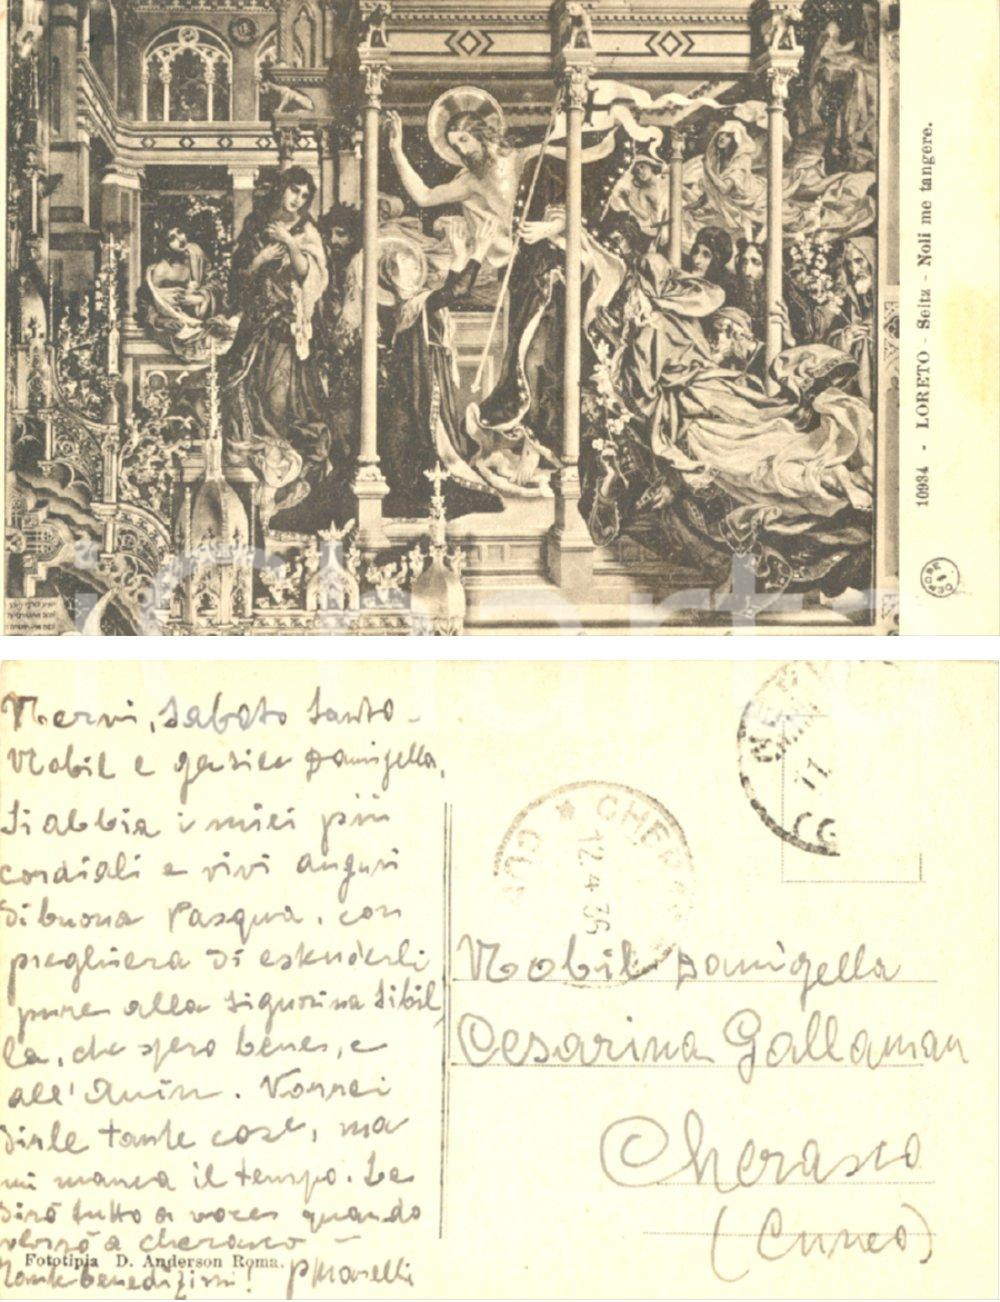 10934 - LORETO - Seitz - Noli me tangere.
Nervi, Sabato Santo -
Nobil e gentile Damigella,
Si abbia i miei più
cordiali e vivi auguri
di buona Pasqua, con
preghiera di estenderli
pure alla Signorina Sibil
la, che spero bene, e
all'. Vorrei
dirle tante cose, ma
mi manca il tempo. Le
dirò tutto a voce quando
verrò a Cherasco -
Tante benedizioni!
Fototipia D. Anderson Roma.
CHER
12.4.36
11
Nobil Damigella
Cesarina Gallaman
Cherasco
(Cuneo)